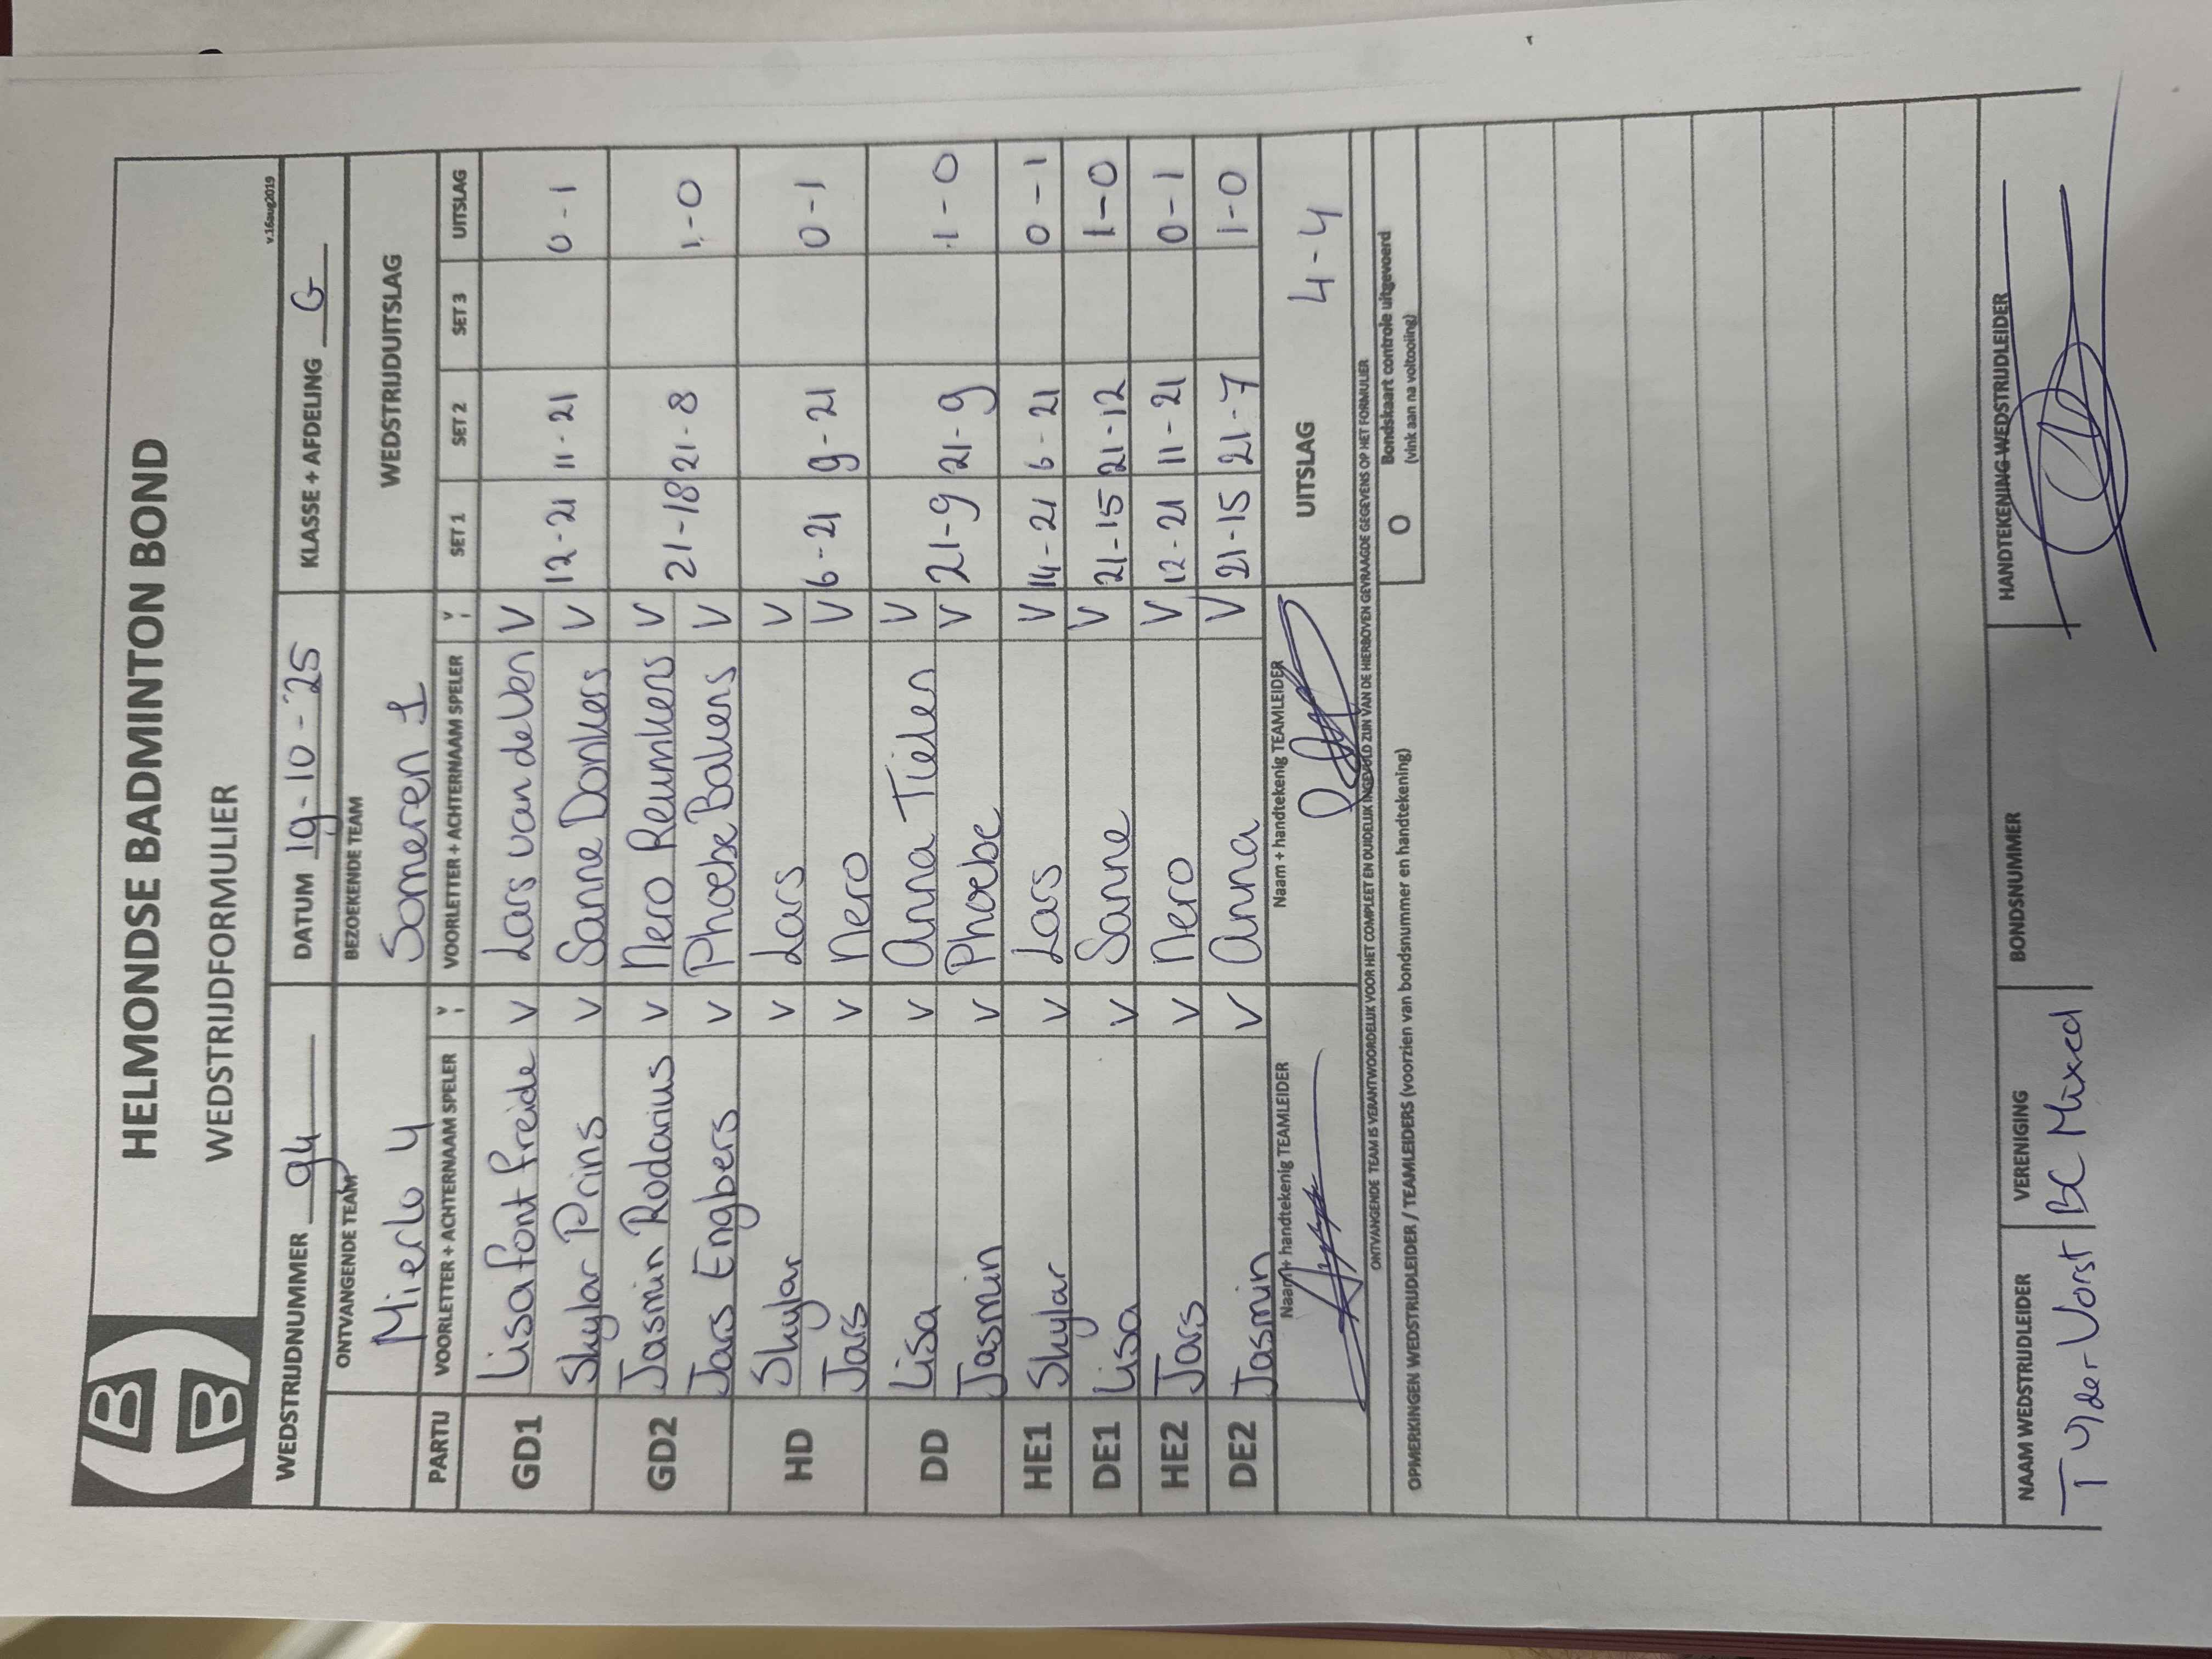 HELMONDSE BADMINTON BOND
WEDSTRIJDFORMULIER
v.16aug2019
WEDSTRIJDNUMMER 94 DATUM 19-10-25 KLASSE + AFDELING G
ONTVANGENDE TEAM BEZOEKENDE TEAM WEDSTRIJDUITSLAG
Mierlo 4 Someren 1
PARTIJ VOORLETTER + ACHTERNAAM SPELER VOORLETTER + ACHTERNAAM SPELER SET 1 SET 2 SET 3 UITSLAG
GD1 Lisa Font Freide V Lars van de Ven V
Skylar Prins V Sanne Donkers V 12-21 11-21 0-1
GD2 Jasmin Rodarius V Nero Reumkens V
Jars Engbers V Phoebe Bakens V 21-18 21-8 1-0
HD Skylar V Lars V
Jars V Nero V 6-21 9-21 0-1
DD Lisa V Anna Tielen V
Jasmin V Phoebe V 21-9 21-9 1-0
HE1 Skylar V Lars V 14-21 6-21 0-1
DE1 Lisa V Sanne V 21-15 21-12 1-0
HE2 Jars V Nero V 12-21 11-21 0-1
DE2 Jasmin V Anna V 21-15 21-7 1-0
Naam + handtekenig TEAMLEIDER Naam + handtekenig TEAMLEIDER UITSLAG 4-4
ONTVANGENDE TEAM IS VERANTWOORDELIJK VOOR HET COMPLEET EN DUIDELIJK INGEVULD ZIJN VAN DE HIERBOVEN GEVRAAGDE GEGEVENS OP HET FORMULIER
OPMERKINGEN WEDSTRIJDLEIDER / TEAMLEIDERS (voorzien van bondsnummer en handtekening) O Bondskaart controle uitgevoerd
(vink aan na voltooiing)
NAAM WEDSTRIJDLEIDER VERENIGING BONDSNUMMER HANDTEKENING WEDSTRIJDLEIDER
T vd Vorst BC Mixed